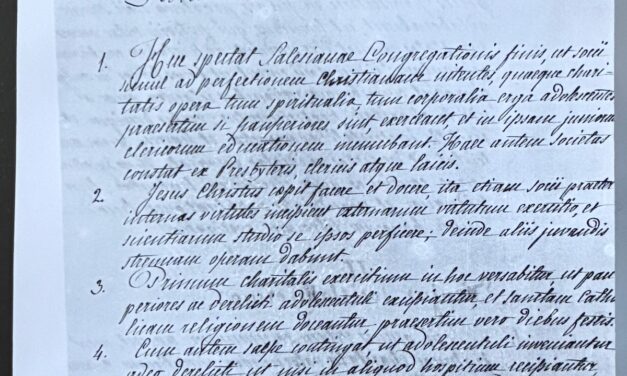 1. Huc spectat Salesianae Congregationis finis, ut socii
simul ad perfectionem Christianam nitentes, quaeque chari-
tatis opera tum spiritualia, tum corporalia erga adolescentes
praesertim si pauperiores sint, exerceant et in ipsam juniorum
clericorum educationem incumbant. Haec autem societas
constat ex Presbyteris, clericis atque laicis.
2. Jesus Christus cœpit facere et docere, ita etiam socii praeter
internas virtutes incipient externarum virtutum exercitio, et
scientiarum studio se ipsos perficere; deinde aliis juvandis
strenuam operam dabunt.
3. Primum charitatis exercitium in hoc versabitur ut pau
periores ac derelicti adolescentuli excipiantur, et sanctam Catho
licam religionem doceantur, praesertim vero diebus festis.
4. Cum autem saepe contingat ut adolescentuli inveniantur
adeo derelicti ut nisi in aliquod hospitium recipiantur